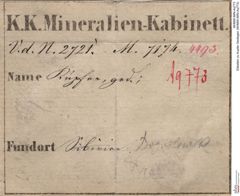 K.K. Mineralien-Kabinett.
V.d.N. 2721. M. 7174. 4493.
Name Kupfer, ged.;
19773
Fundort Sibirien.